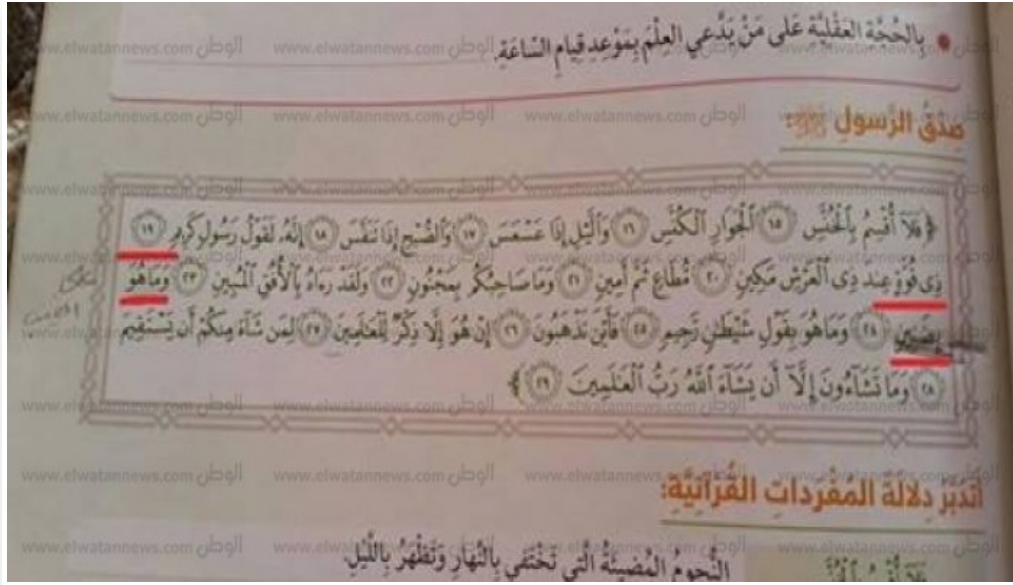 • بِالحُجَّةِ العَقْلِيَّةِ عَلَى مَنْ يَدَّعِي العِلْمَ بِمَوْعِدِ قِيامِ السَّاعَةِ.
صِدْقُ الرَّسولِ ﷺ:
﴿فَلَآ أُقْسِمُ بِٱلْخُنَّسِ ١٥ ٱلْجَوَارِ ٱلْكُنَّسِ ١٦ وَٱلَّيْلِ إِذَا عَسْعَسَ ١٧ وَٱلصُّبْحِ إِذَا تَنَفَّسَ ١٨ إِنَّهُۥ لَقَوْلُ رَسُولٍ كَرِيمٍ ١٩
ذِى قُوَّةٍ عِندَ ذِى ٱلْعَرْشِ مَكِينٍ ٢٠ مُّطَاعٍ ثَمَّ أَمِينٍ ٢١ وَمَا صَاحِبُكُم بِمَجْنُونٍ ٢٢ وَلَقَدْ رَءَاهُ بِٱلْأُفُقِ ٱلْمُبِينِ ٢٣ وَمَا هُوَ
بِضَنِينٍ ٢٤ وَمَا هُوَ بِقَوْلِ شَيْطَٰنٍ رَّجِيمٍ ٢٥ فَأَيْنَ تَذْهَبُونَ ٢٦ إِنْ هُوَ إِلَّا ذِكْرٌ لِّلْعَٰلَمِينَ ٢٧ لِمَن شَآءَ مِنكُمْ أَن يَسْتَقِيمَ
٢٨ وَمَا تَشَآءُونَ إِلَّآ أَن يَشَآءَ ٱللَّهُ رَبُّ ٱلْعَٰلَمِينَ ٢٩﴾
أَتَدَبَّرُ دِلالَةَ المُفْرَداتِ القُرْآنِيَّةِ:
النُّجومُ المُضيئَةُ الَّتي تَخْتَفي بِالنَّهارِ وَتَظْهَرُ بِاللَّيْلِ.
الوطن www.elwatannews.com